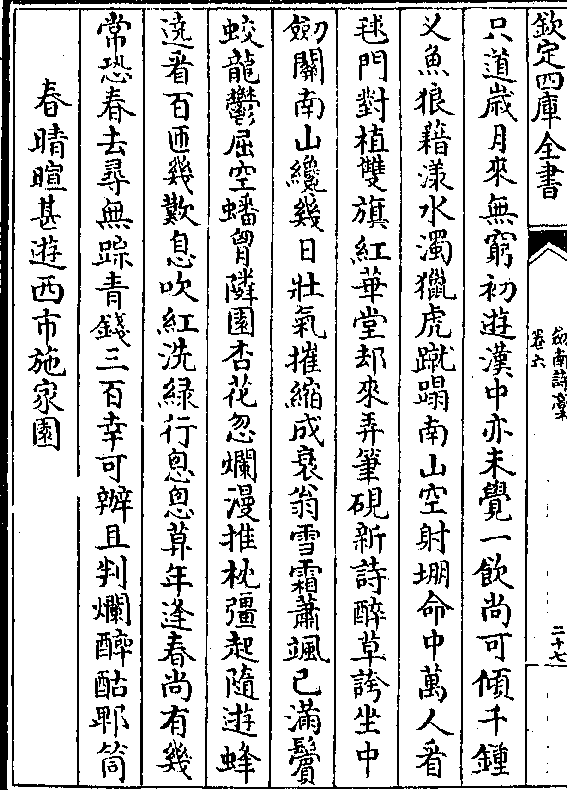 欽定四庫全書
劒南詩藁
卷六
二十七
只道歳月來無窮初遊漢中亦未覺一飲尚可傾千鍾
乂魚狼藉漾水濁獵虎蹴蹋南山空射堋命中萬人看
毬門對植雙旗紅華堂却來弄筆硯新詩醉草誇坐中
劒關南山纔幾日壯氣摧縮成衰翁雪霜蕭颯已滿鬢
蛟龍鬱屈空蟠胷隣園杏花忽爛漫推枕彊起隨遊蜂
遶看百匝幾歎息吹紅洗緑行息息莫年逢春尚有幾
常恐春去尋無踪青錢三百幸可辦且判爛醉酤郫筒
春晴暄甚遊西市施家園